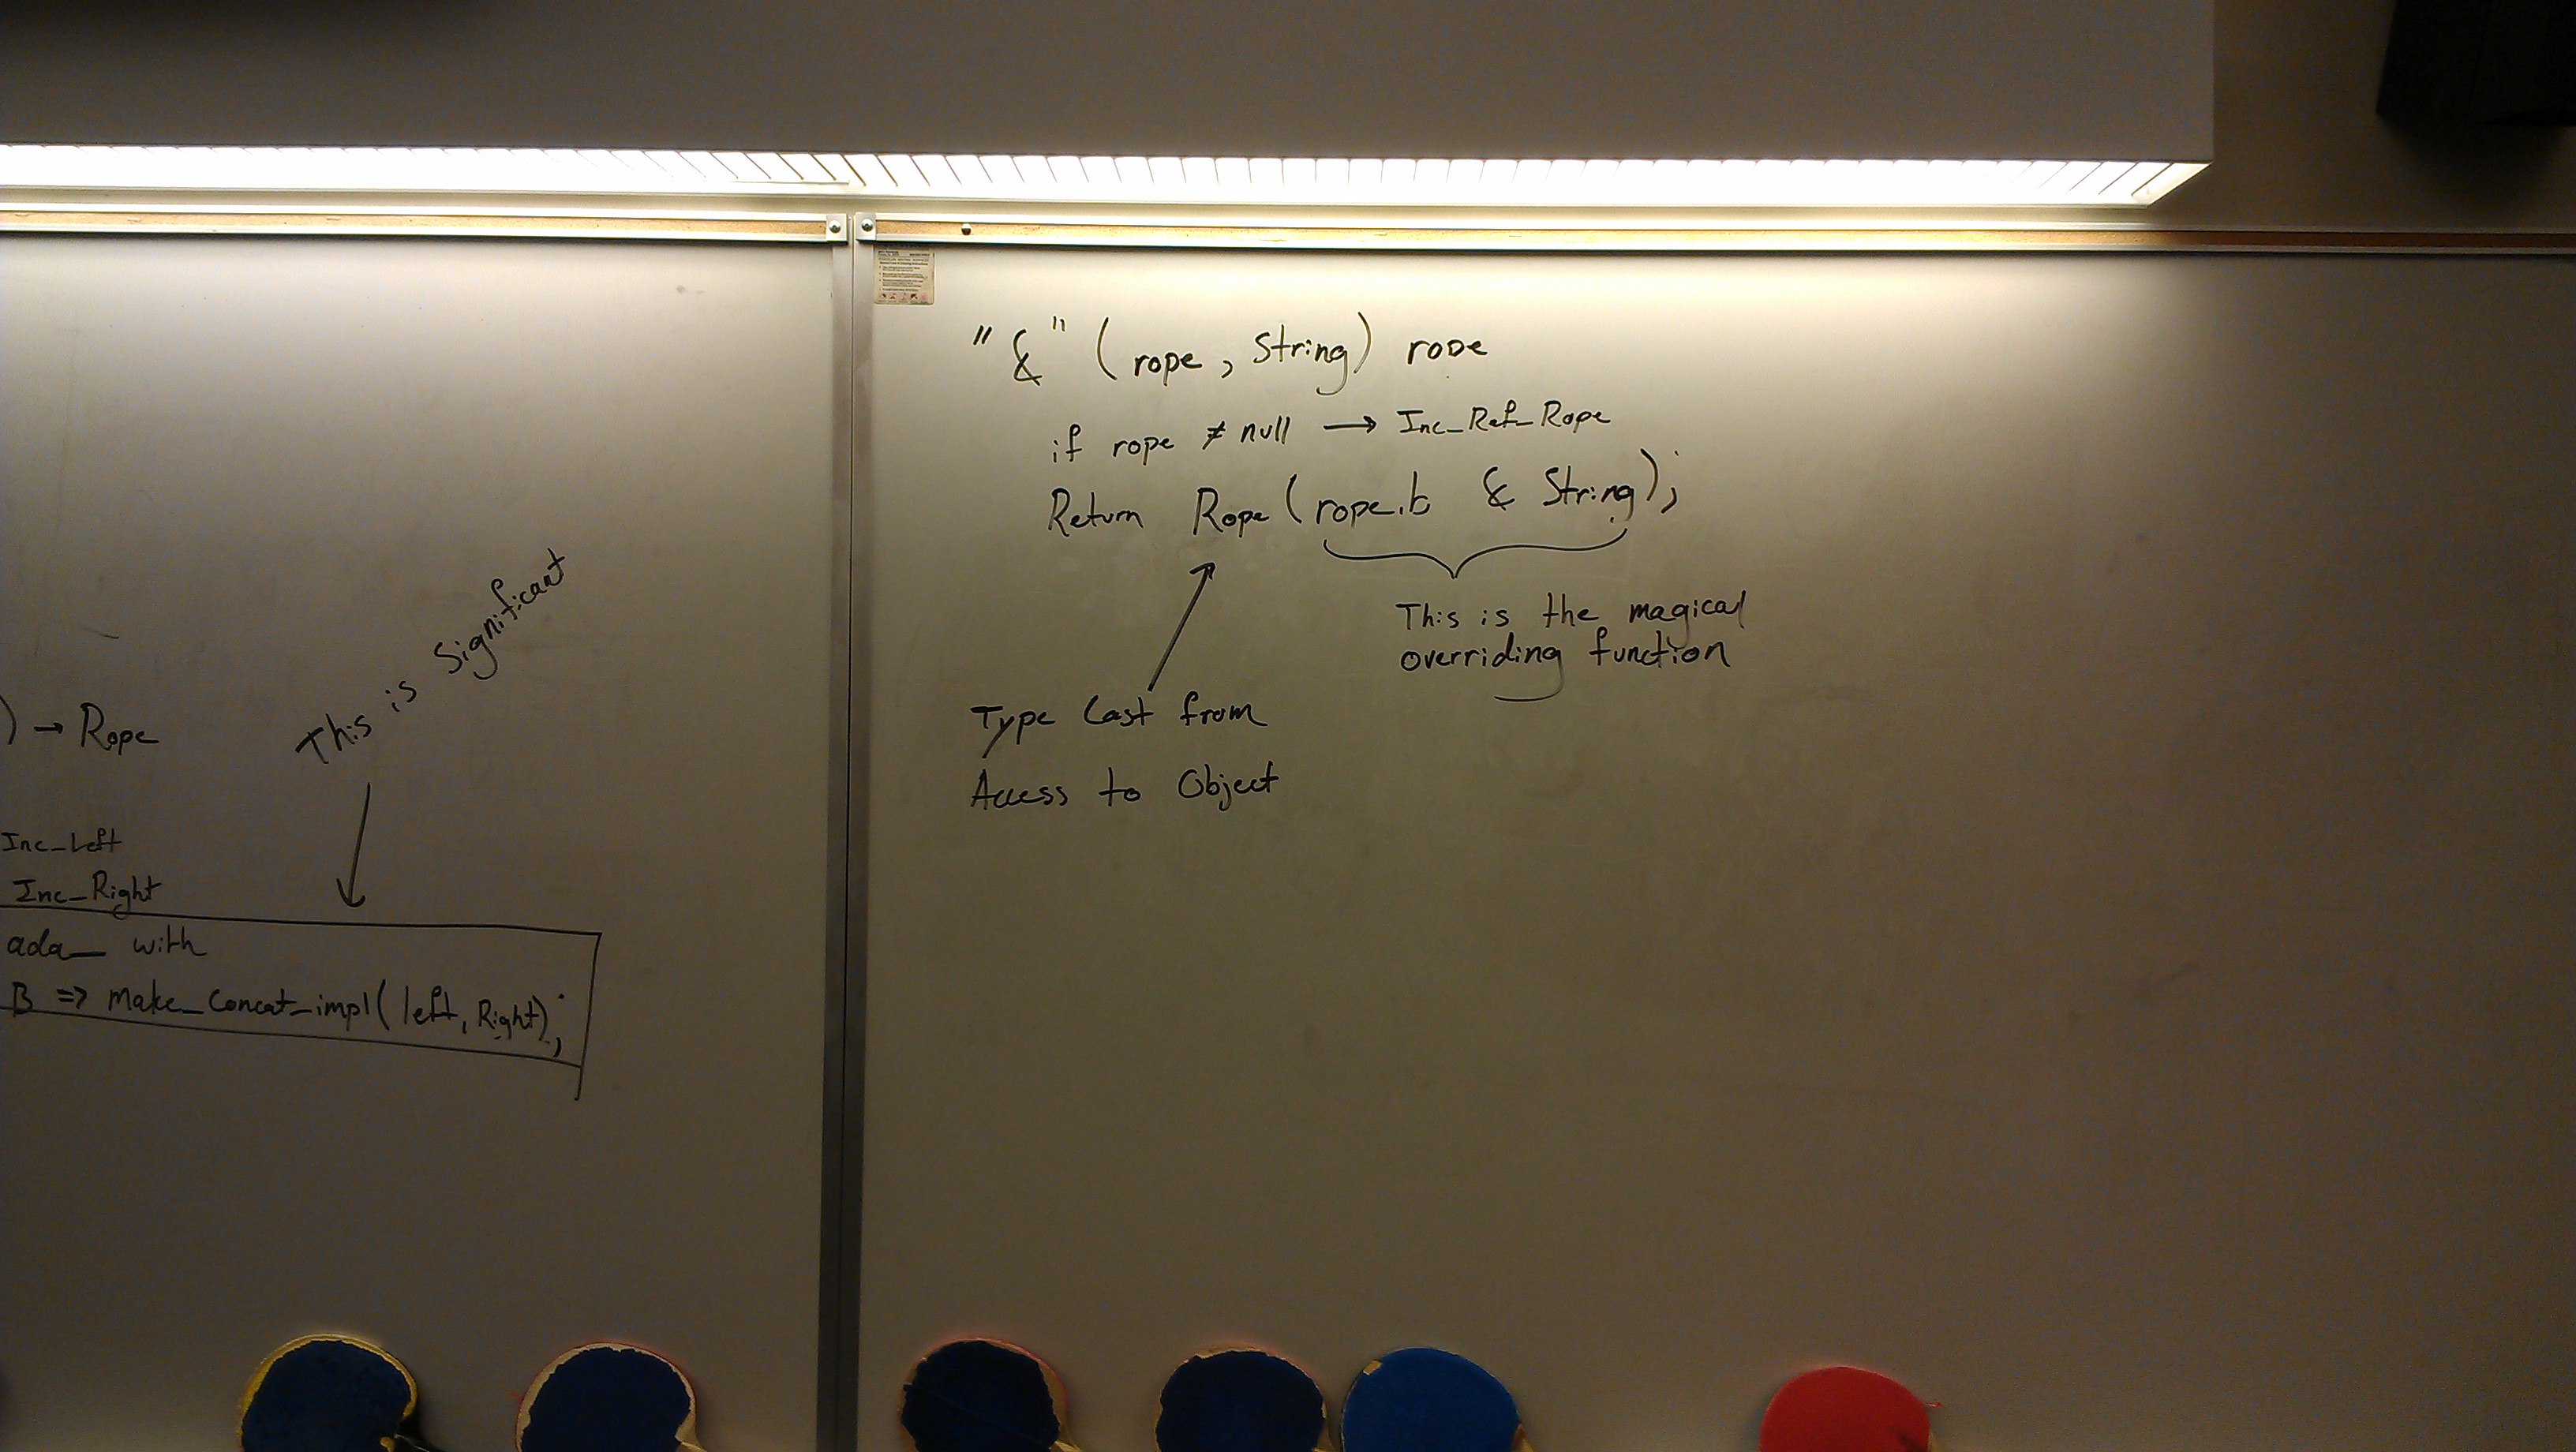 ) → Rope
This is Significant
Inc_Left
Inc_Right
ada_ with
B => make_concat_impl(left, Right);
"&" (rope, String) rope
if rope ≠ null → Inc_Ref_Rope
Return Rope(rope.b & String);
This is the magical
overriding function
Type Cast from
Access to Object